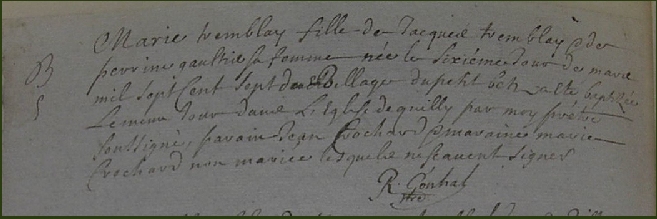 Marie tremblay fille de Jacque tremblay & de
B perrine gaultier sa femme née le sixiéme Jour de mars
mil sept cent sept du village du petit a été baptisée
Le meme Jour dans L'Eglise de quilly par moy prétre
soussigné, parain Jean Crochard & maraine marie
Crochard non mariee lesquels ne scavent signer
R.
ptre